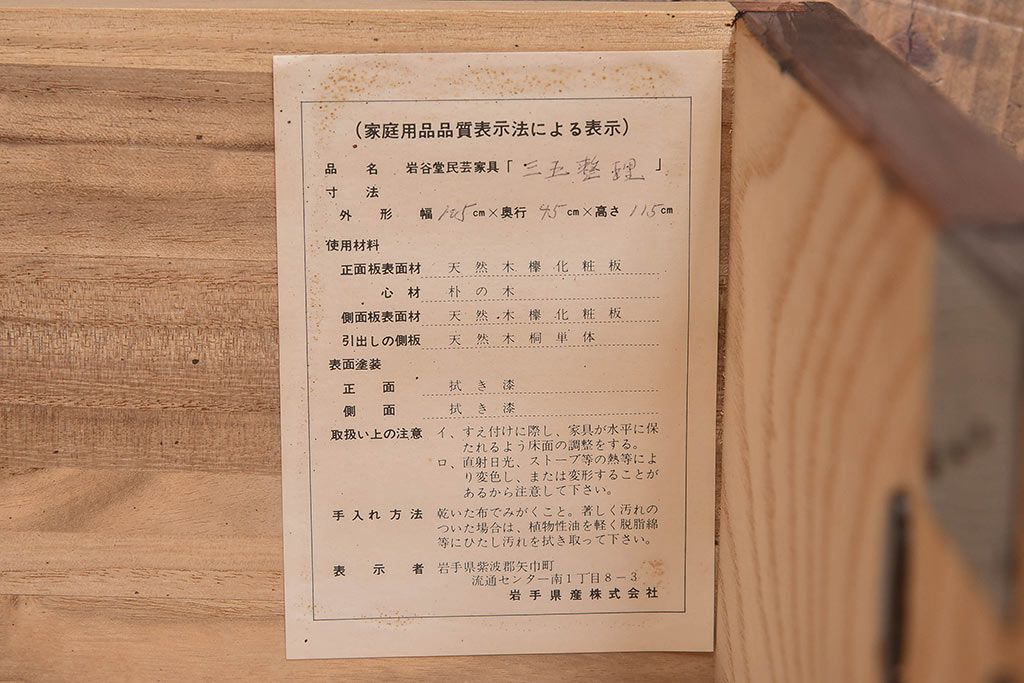 （家庭用品品質表示法による表示）
品名 岩谷堂民芸家具「三五整理」
寸法
外形 幅105cm×奥行45cm×高さ115cm
使用材料
正面板表面材 天然木欅化粧板
心材 朴の木
側面板表面材 天然木欅化粧板
引出しの側板 天然木桐単体
表面塗装
正面 拭き漆
側面 拭き漆
取扱い上の注意 イ、すえ付けに際し、家具が水平に保
たれるよう床面の調整をする。
ロ、直射日光、ストーブ等の熱等によ
り変色し、または変形することが
あるから注意して下さい。
手入れ方法 乾いた布でみがくこと。著しく汚れの
ついた場合は、植物性油を軽く脱脂綿
等にひたし汚れを拭き取って下さい。
表示者 岩手県紫波郡矢巾町
流通センター南1丁目8－3
岩手県産株式会社